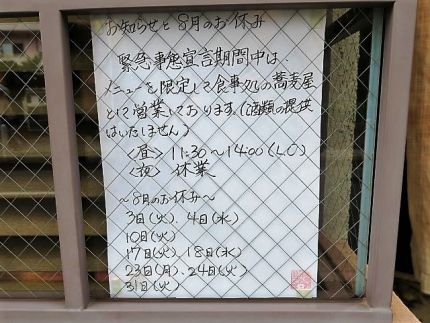 お知らせと8月のお休み
緊急事態宣言期間中は、
メニューを限定して食事処の蕎麦屋
として営業しております。(酒類の提供
はいたしません)
〈昼〉 11:30〜14:00 (L.O)
〈夜〉 休業
〜8月のお休み〜
3日(火)、4日(水)
10日(火)
17日(火)、18日(水)
23日(月)、24日(火)
31日(火)